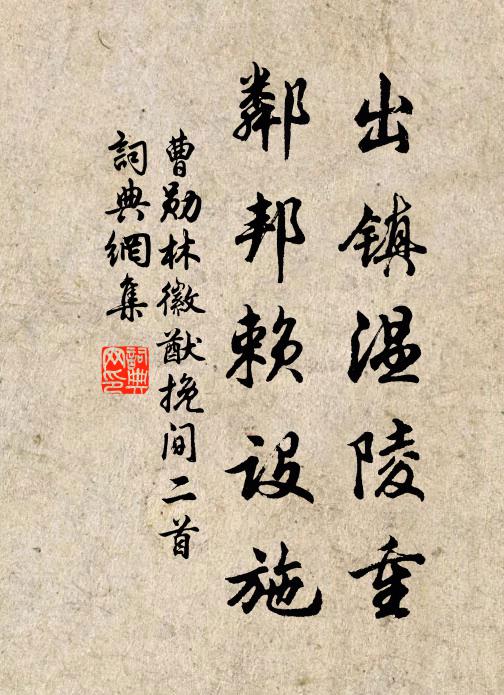 出镇温陵重
鄰邦赖設施
曹勋林徽猷挽间二首
詞典網集
詞典网印